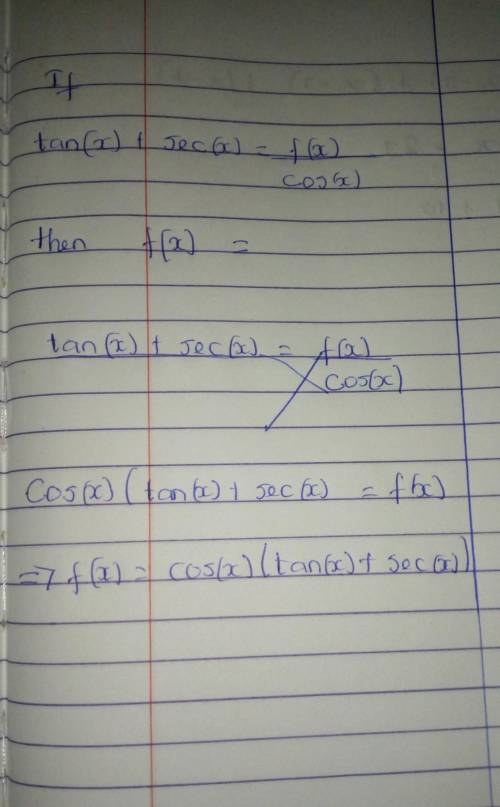 If
tan(x) + sec(x) = f(x)
cos(x)
then f(x) =
tan(x) + sec(x) = f(x)
cos(x)
Cos(x) (tan(x) + sec(x) = f(x)
=> f(x) = cos(x) (tan(x) + sec(x))